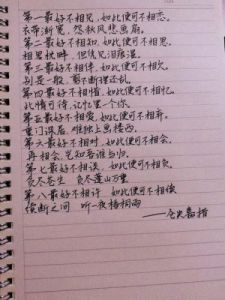 第一最好不相见，如此便可不相恋。
衣带渐宽，怨秋风悲画扇。
第二最好不相知，如此便可不相思。
相思枕畔，但凭见泪痕湿。
第三最好不相伴，如此便可不相欠。
别是一般，剪不断理还乱。
第四最好不相惜，如此便可不相忆。
此情可待，记忆里一个你。
第五最好不相爱，如此便可不相弃。
重门深居，难独上画楼西。
第六最好不相对，如此便可不相会。
再相会，岂知吾谁与归。
第七最好不相误，如此便可不相负。
负尽苍生 负尽蓬山万里
第八最好不相许，如此便可不相续
续断之间 听一夜梧桐雨
——仓央嘉措